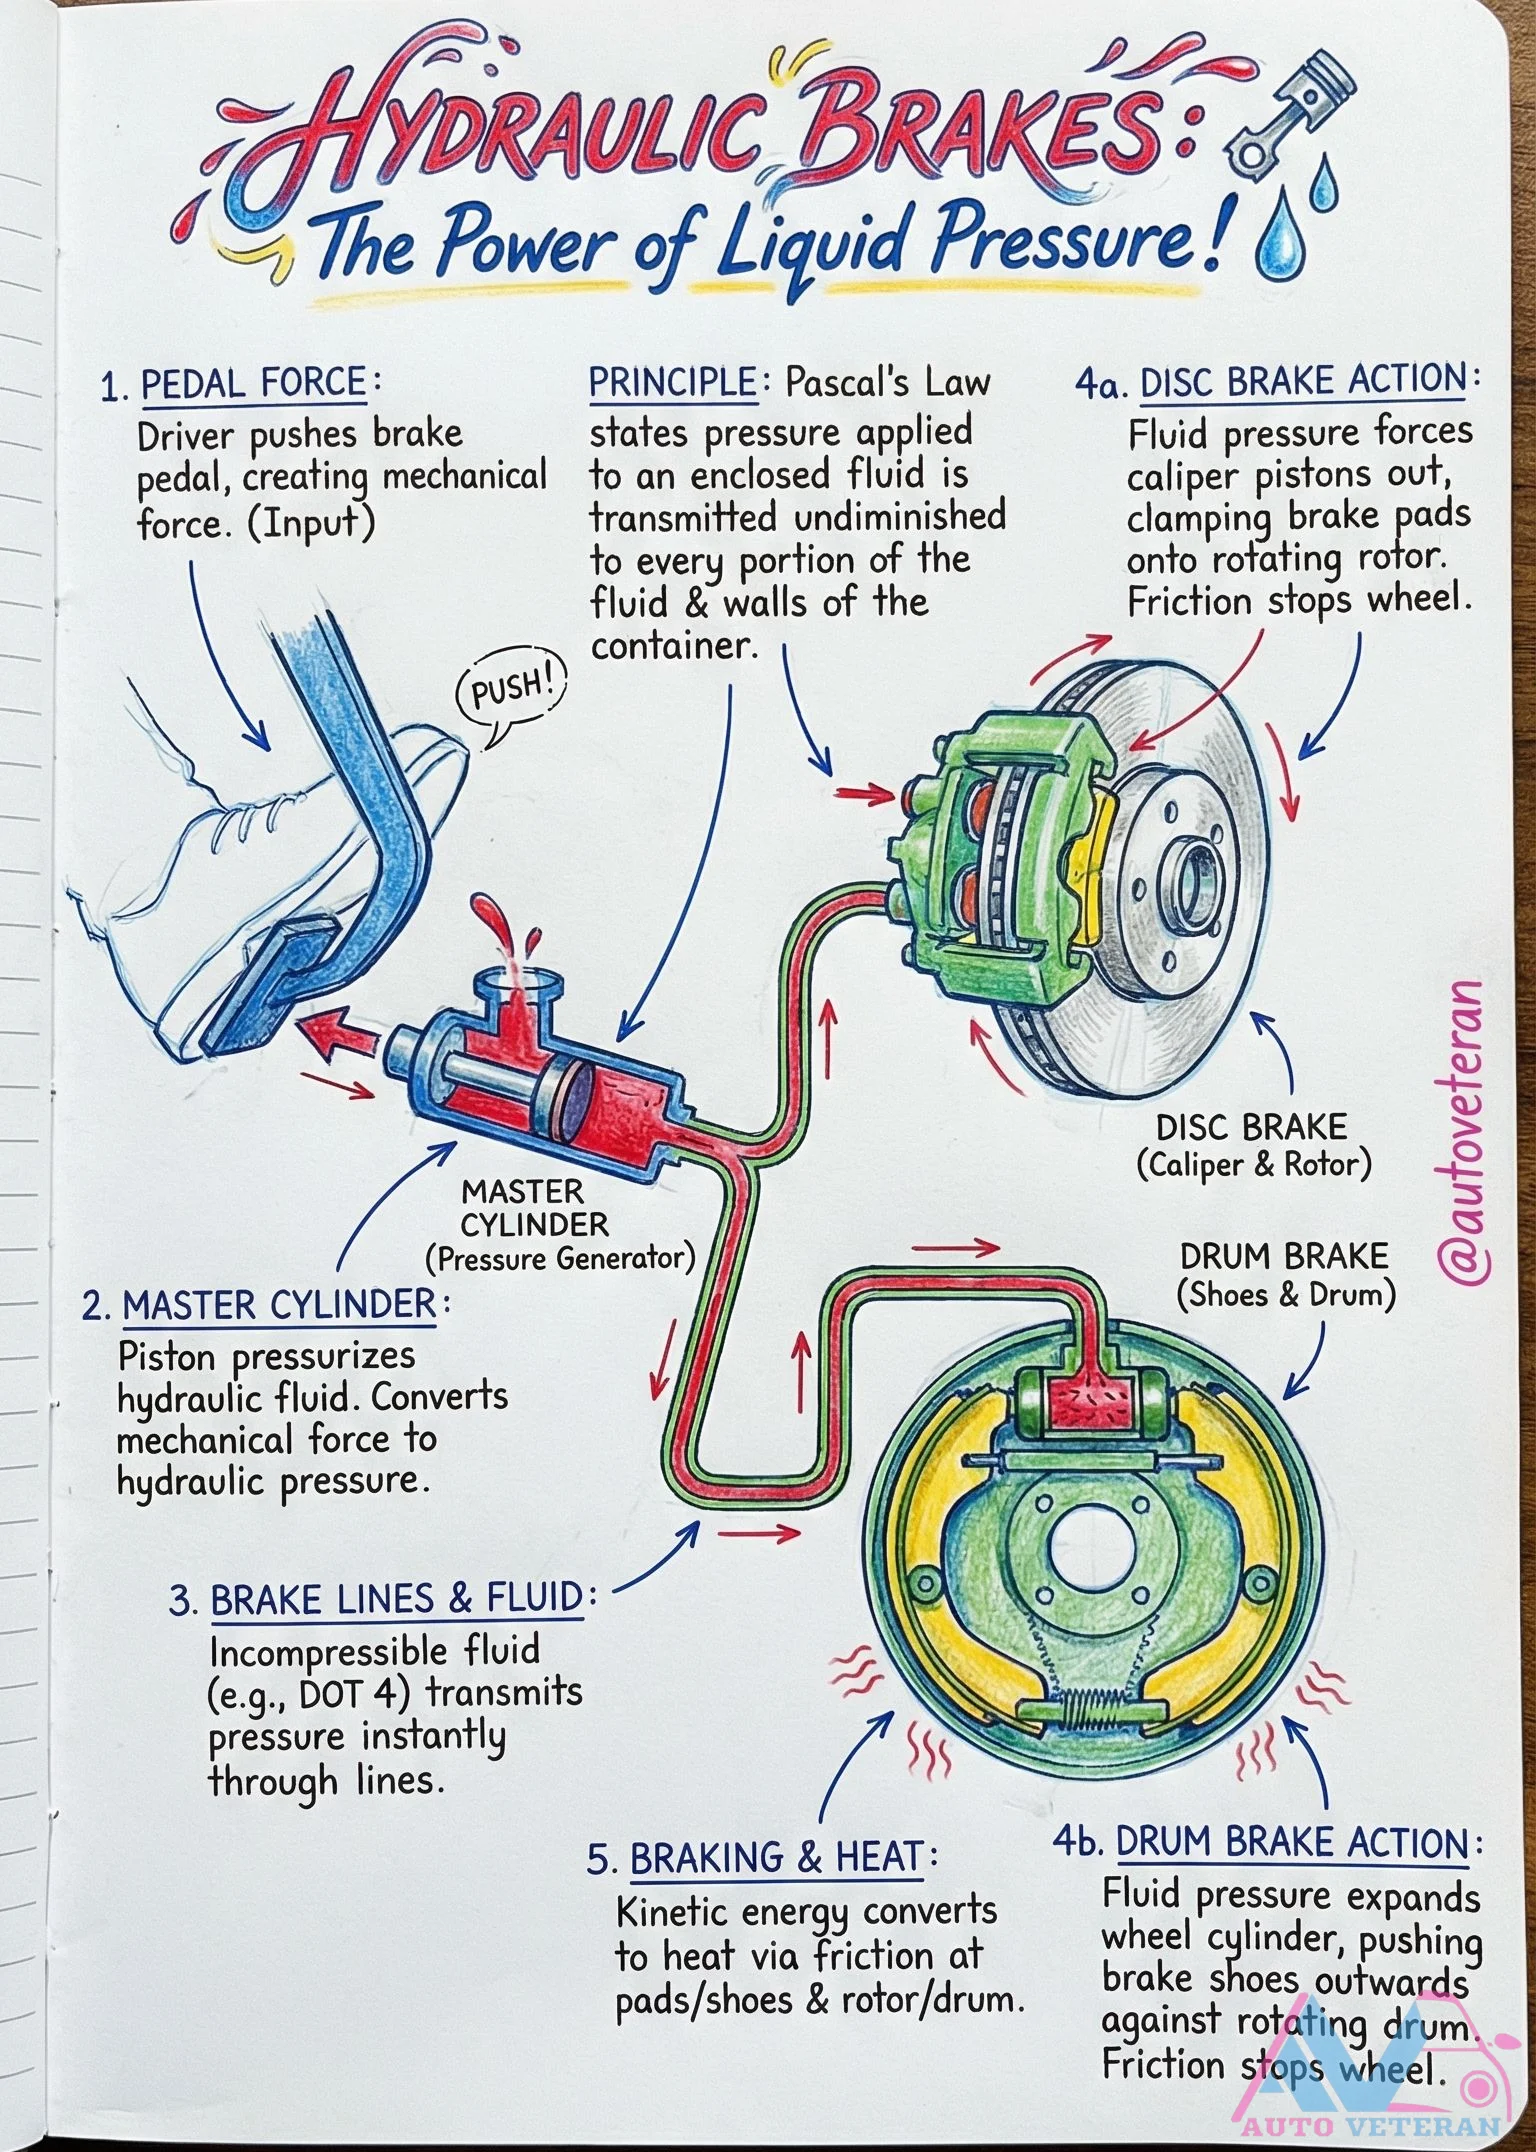 HYDRAULIC BRAKES:
The Power of Liquid Pressure!
1. PEDAL FORCE:
Driver pushes brake
pedal, creating mechanical
force. (Input)
PRINCIPLE: Pascal's Law
states pressure applied
to an enclosed fluid is
transmitted undiminished
to every portion of the
fluid & walls of the
container.
4a. DISC BRAKE ACTION:
Fluid pressure forces
caliper pistons out,
clamping brake pads
onto rotating rotor.
Friction stops wheel.
PUSH!
DISC BRAKE
(Caliper & Rotor)
@autoveteran
MASTER
CYLINDER
(Pressure Generator)
DRUM BRAKE
(Shoes & Drum)
2. MASTER CYLINDER:
Piston pressurizes
hydraulic fluid. Converts
mechanical force to
hydraulic pressure.
3. BRAKE LINES & FLUID:
Incompressible fluid
(e.g., DOT 4) transmits
pressure instantly
through lines.
5. BRAKING & HEAT:
Kinetic energy converts
to heat via friction at
pads/shoes & rotor/drum.
4b. DRUM BRAKE ACTION:
Fluid pressure expands
wheel cylinder, pushing
brake shoes outwards
against rotating drum.
Friction stops wheel.
AV
AUTO VETERAN